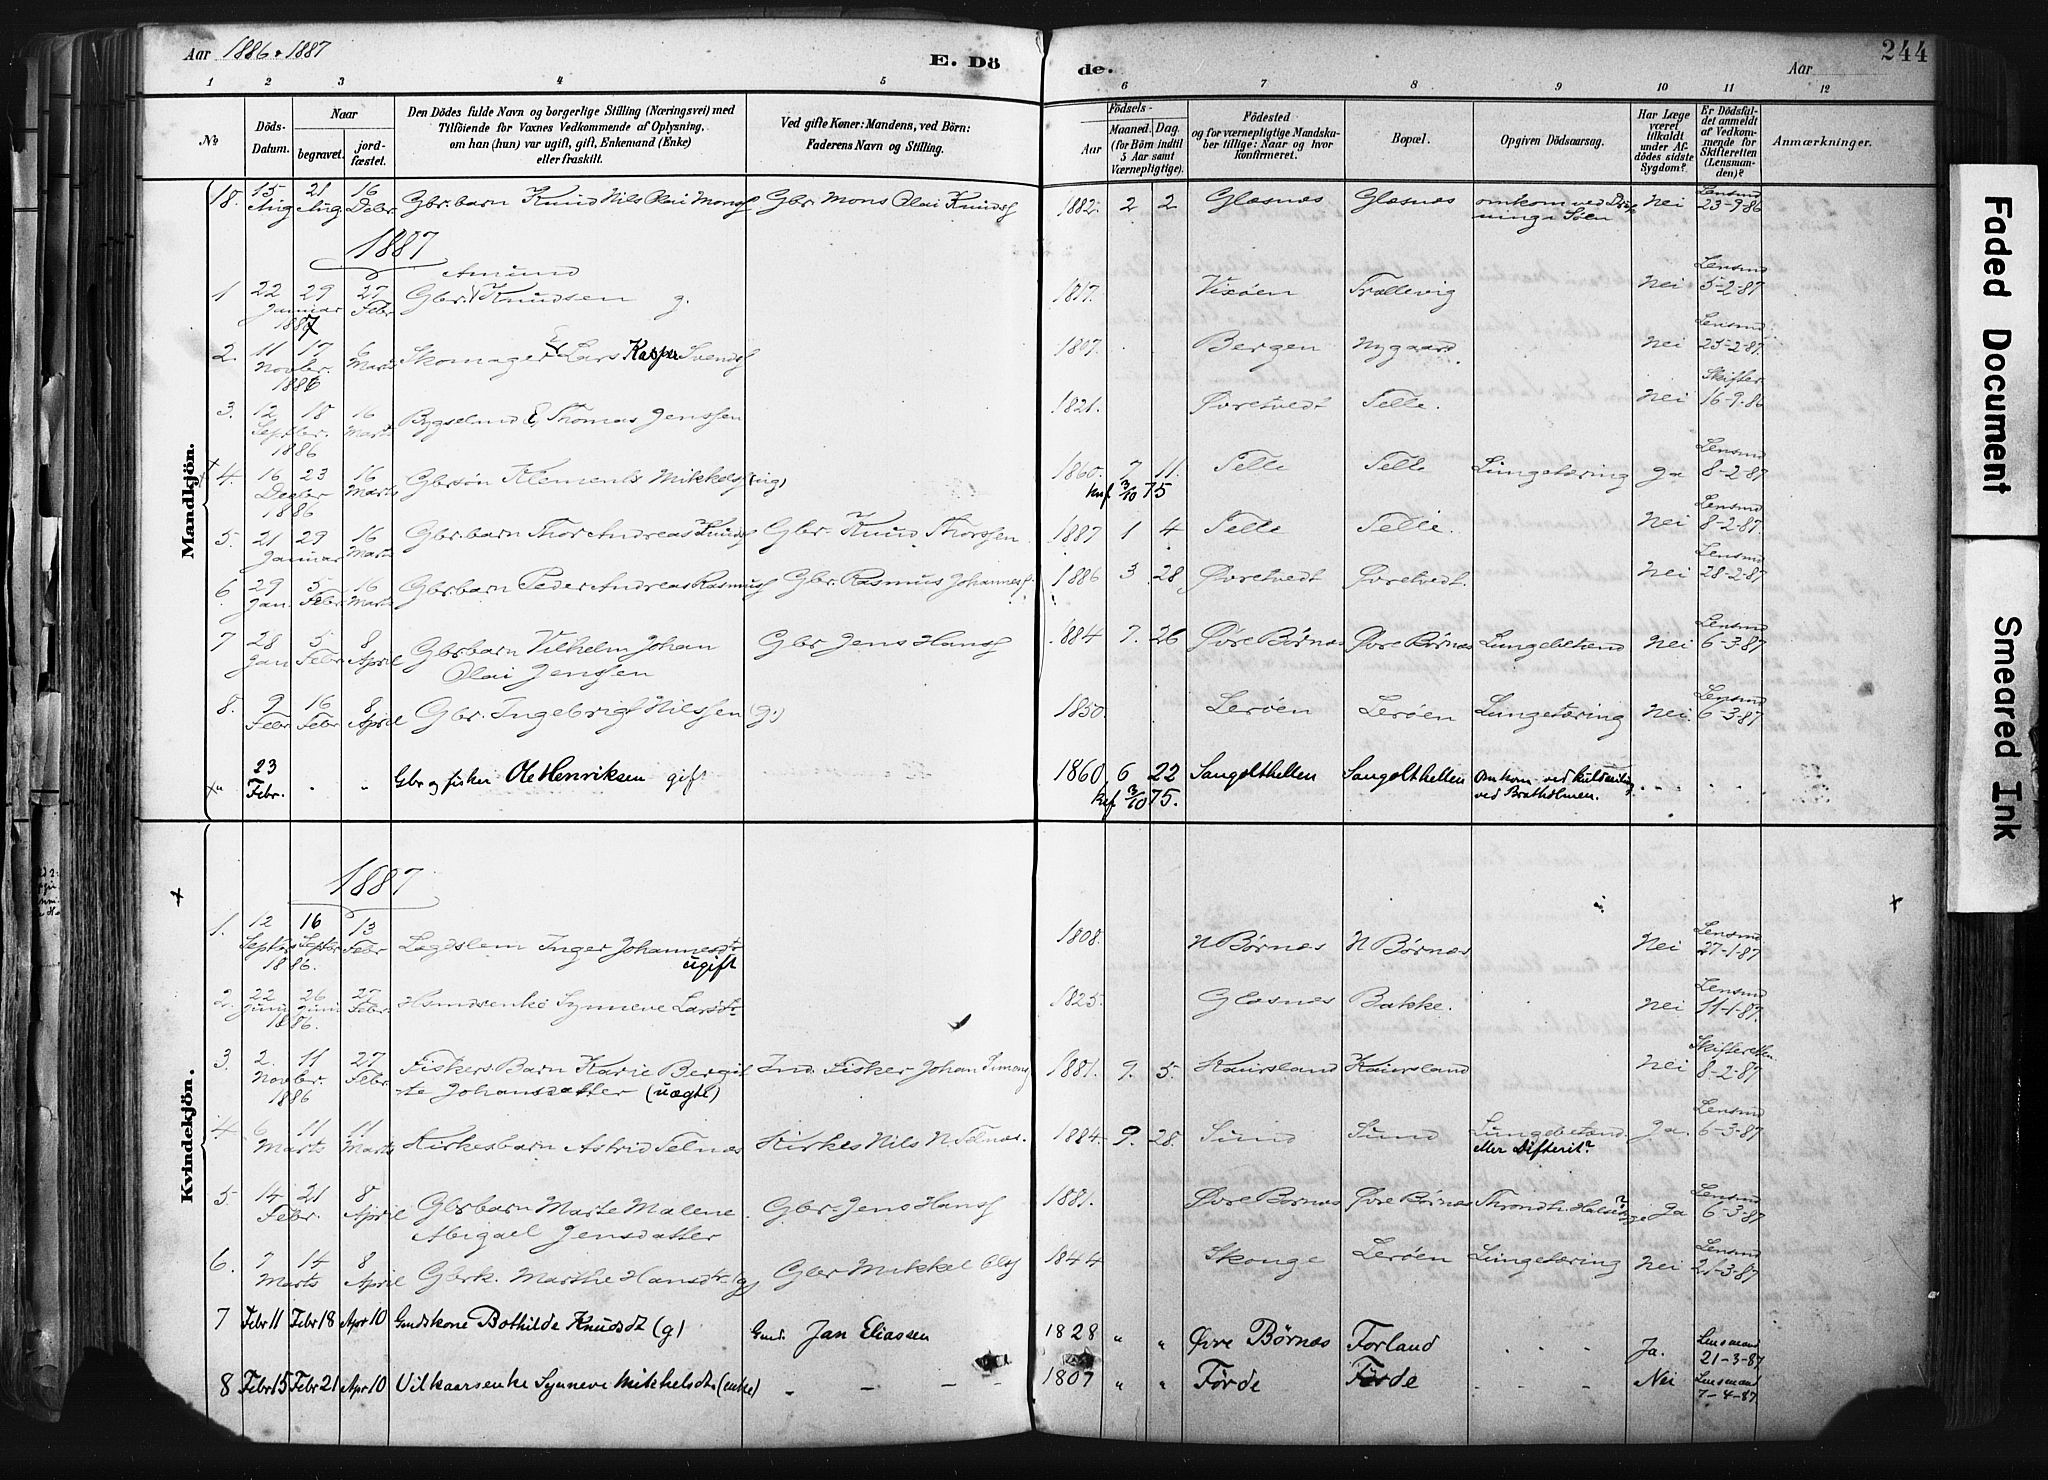 Aar 1886 & 1887 E. Dö de. Aar 244
1 2 3 4 5 6 7 8 9 10 11 12
No
Döds-Datum.
Naar
begravet.
jord-fæstet.
Den Dödes fulde Navn og borgerlige Stilling (Næringsvei) med
Tilföiende for Voxnes Vedkommende af Oplysning,
om han (hun) var ugift, gift, Enkemand (Enke)
eller fraskilt.
Ved gifte Koner: Mandens, ved Börn:
Faderens Navn og Stilling.
Födsels-
Aar
Maaned. Dag.
(for Börn indtil
5 Aar samt
Værnepligtige).
Födested
og for værnepligtige Mandska-
ber tillige: Naar og hvor
konfirmeret.
Bopæl.
Opgiven Dödsaarsag.
Har Læge
været
tilkaldt
under Af-
dödes sidste
Sygdom?
Er Dödsfal-
det anmeldt
af Vedkom-
mende for
Skifteretten
(Lensman-
den)?
Anmærkninger.
Mandkjön.
18. 15 Aug 21 Aug 16 Debr. Gbr. barn Knud Nils Olai Monss Gbr. Mons Olai Knudss 1882. 2 2 Glesnæs Glesnæs omkom ved Nei Lensmd 23-9-86
1887
1 22 Januar 1887 29 27 Febr Gbr. Amund Knudsen g. 1817. Vixøen Trollevig Nei Lensmd 5-2-87
2. 11 Novbr. 1886 17 6 Marts Skomager E Lars Kasper Svends 1807. Bergen Nygaard. Nei Lensmd 25-2-87.
3. 12 Septbr. 1886 18 16 Marts Bygselmd E, Thomas Jenssen 1821. Øvretvedt Telle. Nei Skifter. 16-9-86
4. 16 Decbr 1886 23 16 Marts Gbrsøn Klements Mikkels (ug) 1860. 7 11. Telle Telle Lungetæring Ja Lensmd 8-2-87
knf 3/10 75
5. 21 Januar 29 16 Marts Gbr. barn Thor Andreas Knuds Gbr. Knud Thorssen. 1887 1 4 Telle Telle. Nei Lensmd 8-2-87.
6 29 Jan. 5 Febr. 16 Marts Gbr. barn Peder Andreas Rasmuss Gbr. Rasmus Johanness. 1886 3 28 Øvretvedt Øvretvedt. Nei Lensmd 28-2-87
7 28 Jan 5 Febr 8 April Gbr barn Vilhelm Johan Gbr Jens Hanss 1884 7. 26 Øvre Børnæs Øvre Børnæs Lungebetænd Nei Lensmd 6-3-87
Olai Jenssen
8. 9 Febr 16 Febr 8 April Gbr. Ingebrigt Nilssen (g.) 1850. Lerøen Lerøen Lungetæring Nei Lensmd 6-3-87
23 Febr. Gbr og fisker Ole Henriksen gift 1860. 6 22 Sangolthellen Sangolthellen Omkom ved
knf 3/10 75. ved Bratholmen.
Kvindekjön.
1887
1. 12 Septbr 1886. 16 Septbr 13 Febr Lægdslem Inger Johannesdtr 1808. N Børnæs N Børnæs Nei Lensmd 27-1-87
ugift
2. 22 Juni 1886. 26 Juni 27 Febr. Hsmdsenke Synneve Larsdtr 1825. Glesnæs Bakke. Nei Lensmd 11-1-87.
3. 2. Novbr. 1886 11 27 Febr. Fiskers Barn Karie Bergit- Ind. Fisker Johan Simons 1881. 9. 5. Kaursland Kaursland Nei Skifteretten. 8-2-87
te Johansdatter (uægte)
4. 6 Marts 11 11 Marts Kirkesbarn Astrid Telnæs Kirkes Nils N Telnæs. 1884. 9. 28. Sund Sund Lungebetænd. Ja. Lensmd 6-3-87
eller Difterit?
5. 14 Febr. 21 8 April Gbr barn Marte Malene Gbr. Jens Hanss 1881. Øvre Bornæs Øvre Børnæs Throndh. Halssyge? Ja Lensmd 6-3-87
Abigael Jensdatter
6. 7 Marts 14 8 April Gbrk. Marthe Hansdtr. (g) Gbr Mikkel Ols 1844 Skonge Lerøen Lungetæring Nei Lensmd 21-3-87
7 Febr 11 Febr 18 Apr 10 Gmdskone Bothilde Knudsdt (g) Gmd. Jan Eliassen 1828 " " Øvre Børnæs Forland Ja. Lensmand 21-3-87
8 Febr 15 Febr 21 Apr 10 Vilkaarsenke Synneve Mikkelsdt. (enke) 1807 " " Førde Førde Nei Lensmand 7-4-87
Faded Document
Smeared Ink